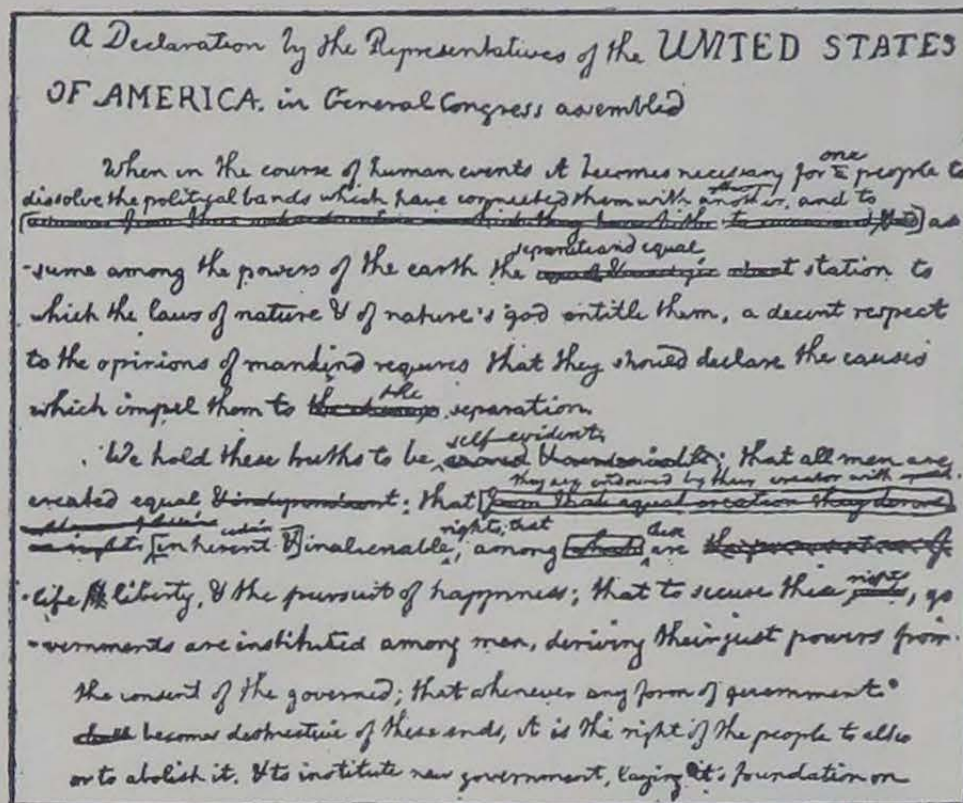 A Declaration by the Representatives of the UNITED STATES
OF AMERICA. in General Congress assembled
When in the course of human events it becomes necessary for one people to
dissolve the political bands which have connected them with another, and to
as
-sume among the powers of the earth the separate and equal station to
which the laws of nature & of nature's god entitle them, a decent respect
to the opinions of mankind requires that they should declare the causes
which impel them to the separation.
We hold these truths to be self-evident; that all men are
they are endowed by their creator with
created equal & independent; that [from that equal creation they derive
rights [inherent &] inalienable rights; that among [which] are
life liberty, & the pursuit of happiness; that to secure these rights, go
-vernments are instituted among men, deriving their just powers from
the consent of the governed; that whenever any form of government
shall becomes destructive of these ends, it is the right of the people to alter
or to abolish it, & to institute new government, laying it's foundation on